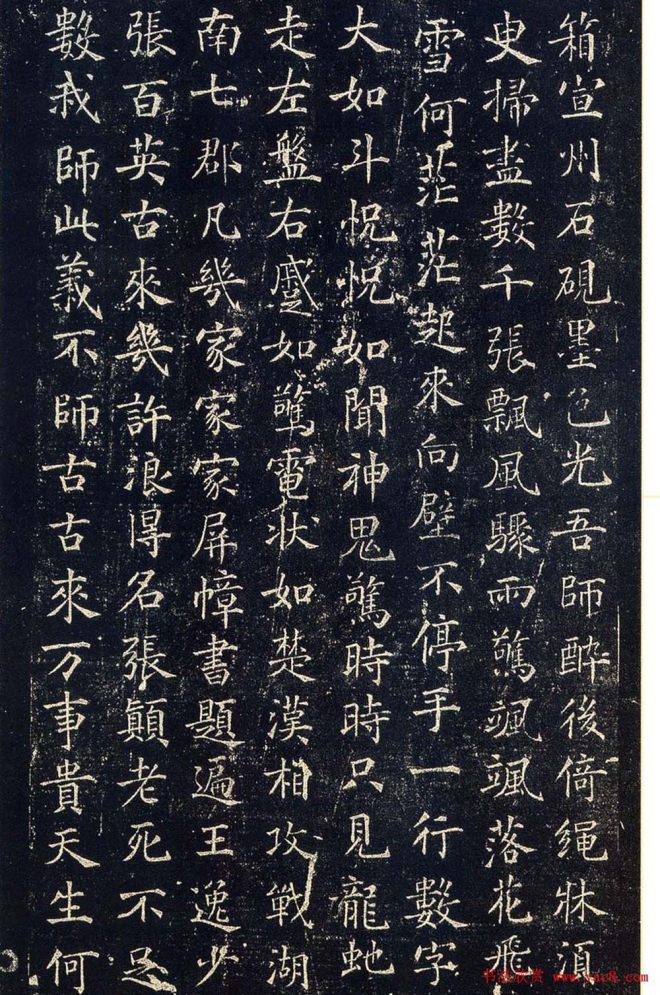 箱宣州石硯墨色光吾師醉後倚繩牀須
臾掃盡數千張飄風驟雨驚颯颯落花飛
雪何茫茫起來向壁不停手一行數字
大如斗怳怳如聞神鬼驚時時只見龍虵
走左盤右蹙如驚電狀如楚漢相攻戰湖
南七郡凡幾家家家屏幛書題遍王逸少
張百英古來幾許浪得名張顛老死不足
數我師此義不師古古來万事貴天生何
书法欣赏 www.yac8.com